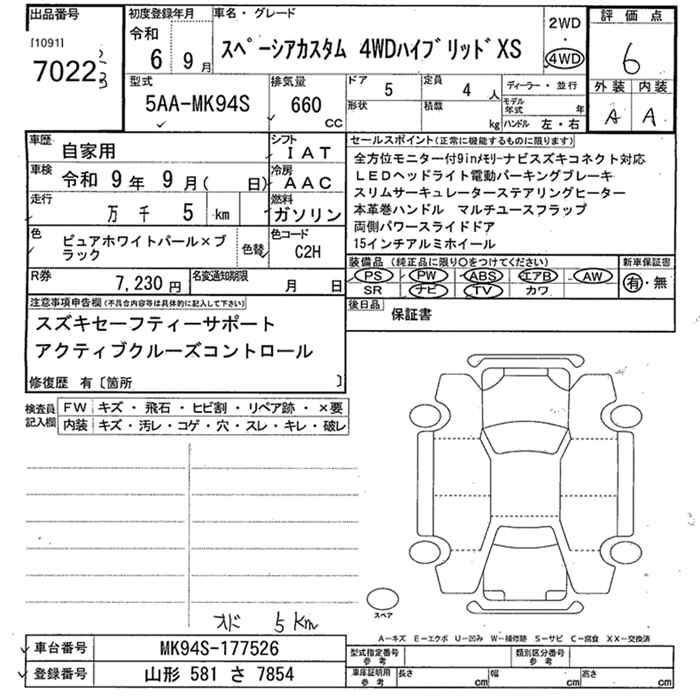 出品番号 初度登録年月 車名・グレード 2WD・4WD 評価点
[1091] 7022 令和 6 9月 スペーシアカスタム 4WDハイブリッド XS 6
型式 排気量 ドア 5 定員 4 人 ディーラー・並行 外装 内装
5AA-MK94S 660 CC 形状 積載 kg モデル年式 年 ハンドル 左・右 A A
車歴 自家用 シフト IAT
車検 令和 9年 9月( 日) 冷房 AAC
走行 万 千 5 km 燃料 ガソリン
色 ピュアホワイトパール×ブラック 色替 色コード C2H
R券 7,230 円 名変通知期限 月 日
セールスポイント(正常に機能するものに限り)
全方位モニター付9inメモリーナビスズキコネクト対応
LEDヘッドライト電動パーキングブレーキ
スリムサーキュレーターステアリングヒーター
本革巻ハンドル マルチユースフラップ
両側パワースライドドア
15インチアルミホイール
装備品(純正品に限り○をつけてください) 新車保証書
PS PW ABS エアB AW 有・無
SR ナビ TV カワ
後日品 保証書
注意事項申告欄(不具合内容等は具体的に記入して下さい)
スズキセーフティーサポート
アクティブクルーズコントロール
修復歴 有〔箇所 〕
検査員記入欄 FW キズ・飛石・ヒビ割・リペア跡・×要
内装 キズ・汚レ・コゲ・穴・スレ・キレ・破レ
スペア
オド 5km
A-キズ E-エクボ U-凹み W-補修跡 S-サビ C-腐食 XX-交換済
車台番号 MK94S-177526 型式指定番号 参考 類別区分番号 参考
登録番号 山形 581 さ 7854 車庫証明用 参考 長さ cm 幅 cm 高さ cm